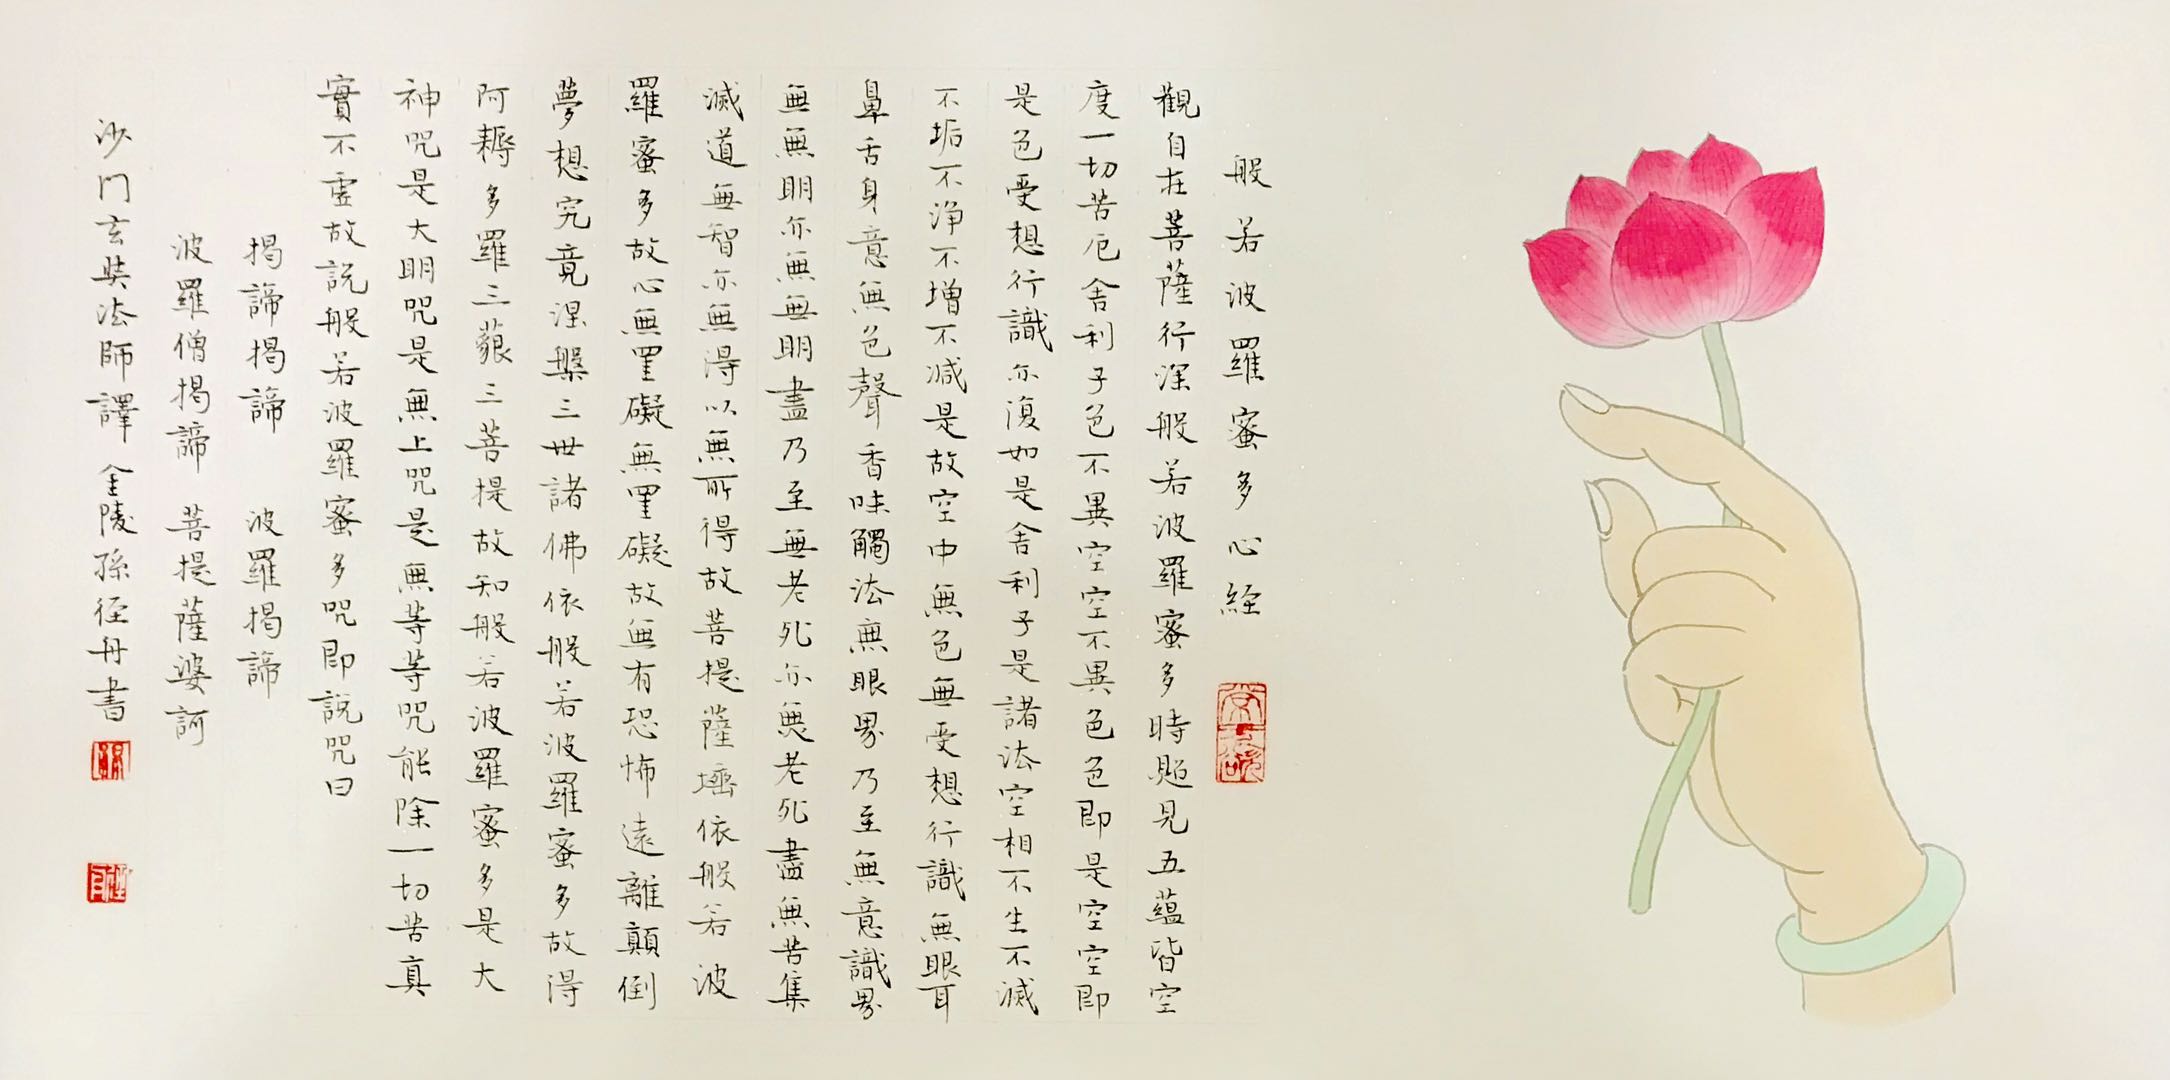 般若波羅蜜多心経
觀自在菩薩行深般若波羅蜜多時照見五蘊皆空
度一切苦厄舍利子色不異空空不異色色即是空空即
是色受想行識亦復如是舍利子是諸法空相不生不滅
不垢不淨不增不減是故空中無色無受想行識無眼耳
鼻舌身意無色聲香味觸法無眼界乃至無意識界
無無明亦無無明盡乃至無老死亦無老死盡無苦集
滅道無智亦無得以無所得故菩提薩埵依般若波
羅蜜多故心無罣礙無罣礙故無有恐怖遠離顛倒
夢想究竟涅槃三世諸佛依般若波羅蜜多故得
阿耨多羅三藐三菩提故知般若波羅蜜多是大
神咒是大明咒是無上咒是無等等咒能除一切苦真
實不虛故說般若波羅蜜多咒即說咒曰
揭諦揭諦 波羅揭諦
波羅僧揭諦 菩提薩婆訶
沙門玄奘法師譯 金陵孫径舟書